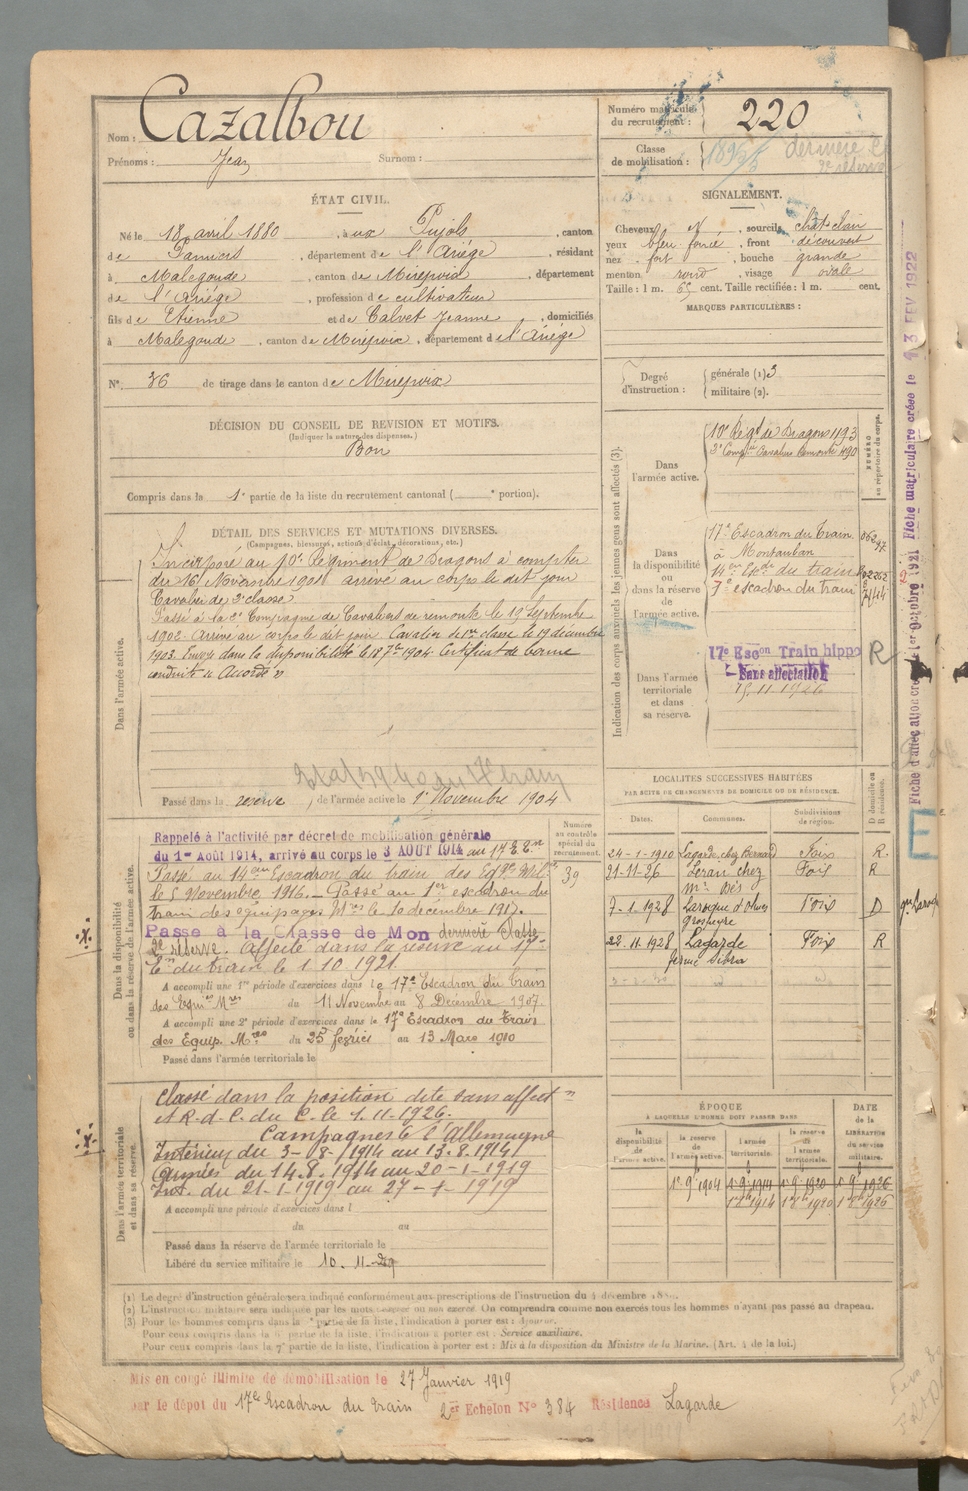 Nom : Cazalbou
Prénoms : Jean Surnom :
Numéro matricule du recrutement : 220
Classe de mobilisation : dernière C
2e réserve
ÉTAT CIVIL.
Né le 18 avril 1880, à aux Pujols, canton
de Pamiers, département de l'Ariège, résidant
à Malegoude, canton de Mirepoix, département
de l'Ariège, profession de cultivateur
fils de Etienne et de Calvet Jeanne, domiciliés
à Malegoude, canton de Mirepoix, département de l'Ariège
N° 36 de tirage dans le canton de Mirepoix
SIGNALEMENT.
Cheveux et, sourcils chât. clair
yeux bleu foncé, front découvert
nez fort, bouche grande
menton rond, visage ovale
Taille : 1 m. 65 cent. Taille rectifiée : 1 m. cent.
MARQUES PARTICULIÈRES :
Degré d'instruction : générale (1) 3
militaire (2).
DÉCISION DU CONSEIL DE REVISION ET MOTIFS.
(Indiquer la nature des dispenses.)
Bon
Compris dans la 1e partie de la liste du recrutement cantonal ( e portion).
DÉTAIL DES SERVICES ET MUTATIONS DIVERSES.
(Campagnes, blessures, actions d'éclat, décorations, etc.)
Dans l'armée active.
Incorporé au 10e Régiment de Dragons à compter
du 16 Novembre 1901 arrivé au corps le dit jour
Cavalier de 2e classe
Passé à la 3e Compagnie de Cavaliers de remonte le 19 Septembre
1902. Arrivé au corps le dit jour. Cavalier de 1re classe le 19 décembre
1903. Envoyé dans la disponibilité le 18 7bre 1904. Certificat de bonne
conduite « Accordé »
Passé dans la réserve de l'armée active le 1er Novembre 1904
Indication des corps auxquels les jeunes gens sont affectés (3).
NUMÉRO au répertoire du corps.
Dans l'armée active.
10e Régt de Dragons 1193
3e Compie Cavaliers remonte 490
Dans la disponibilité ou dans la réserve de l'armée active.
17e Escadron du Train
à Montauban
14e Esc. du train
7e escadron du train
Dans l'armée territoriale et dans sa réserve.
17e Escon Train hippo R
Sans affectation
15.11.1926
Dans la disponibilité ou dans la réserve de l'armée active.
Numéro au contrôle spécial du recrutement.
39
Rappelé à l'activité par décret de mobilisation générale
du 1er Août 1914, arrivé au corps le 3 AOUT 1914 au 17e Eon
Passé au 14ème Escadron du train des Eqges Milres
le 5 Novembre 1916. Passé au 1er escadron du
train des équipages Mres le 10 décembre 1917.
Passé à la Classe de Mon dernière Classe
2e réserve. Affecté dans la réserve au 17e
Eon du train le 1.10.1921.
A accompli une 1re période d'exercices dans le 17e Escadron du Train
des Equies Mres du 11 Novembre au 8 Décembre 1907.
A accompli une 2e période d'exercices dans le 17e Escadron du Train
des Equip. Mres du 25 février au 13 Mars 1910
Passé dans l'armée territoriale le
LOCALITES SUCCESSIVES HABITÉES
PAR SUITE DE CHANGEMENTS DE DOMICILE OU DE RÉSIDENCE.
Dates. Communes. Subdivisions de région. D domicile ou R résidence.
24-1-1910 Lagarde, chez Bernard Foix R.
21-11-26 Leran chez Foix R
7-1-1928 Laroque d'Olmes Foix D
22.11.1928 Lagarde Foix R
ferme Sibra
Dans l'armée territoriale et dans sa réserve.
Classé dans la position dite sans affectn
et R.d.C. du C. le 1.11-1926.
Campagnes C l'Allemagne
Intérieur du 3-8-1914 au 13.8.1914
Armées du 14.8.1914 au 20-1-1919
Int. du 21-1-1919 au 27-1-1919
A accompli une période d'exercices dans l
du au
Passé dans la réserve de l'armée territoriale le
Libéré du service militaire le 10.11-29
ÉPOQUE
À LAQUELLE L'HOMME DOIT PASSER DANS
DATE de la LIBÉRATION du service militaire.
la disponibilité de l'armée active. la réserve de l'armée active. l'armée territoriale. la réserve de l'armée territoriale.
1er 9bre 1904
(1) Le degré d'instruction générale sera indiqué conformément aux prescriptions de l'instruction du 4 décembre
(2) L'instruction militaire sera indiquée par les mots exercé ou non exercé. On comprendra comme non exercés tous les hommes n'ayant pas passé au drapeau.
(3) Pour les hommes compris dans la partie de la liste, l'indication à porter est : Ajourné.
Pour ceux compris dans la 6e partie de la liste, l'indication à porter est : Service auxiliaire.
Pour ceux compris dans la 7e partie de la liste, l'indication à porter est : Mis à la disposition du Ministre de la Marine. (Art. 4 de la loi.)
Mis en congé illimité de démobilisation le 27 Janvier 1919
par le dépot du 17e Escadron du train 2er Echelon N° 384 Résidence Lagarde
Fiche d'affectation créée le 1er Octobre 1921 Fiche matriculaire créée le 13 FEV 1922
E